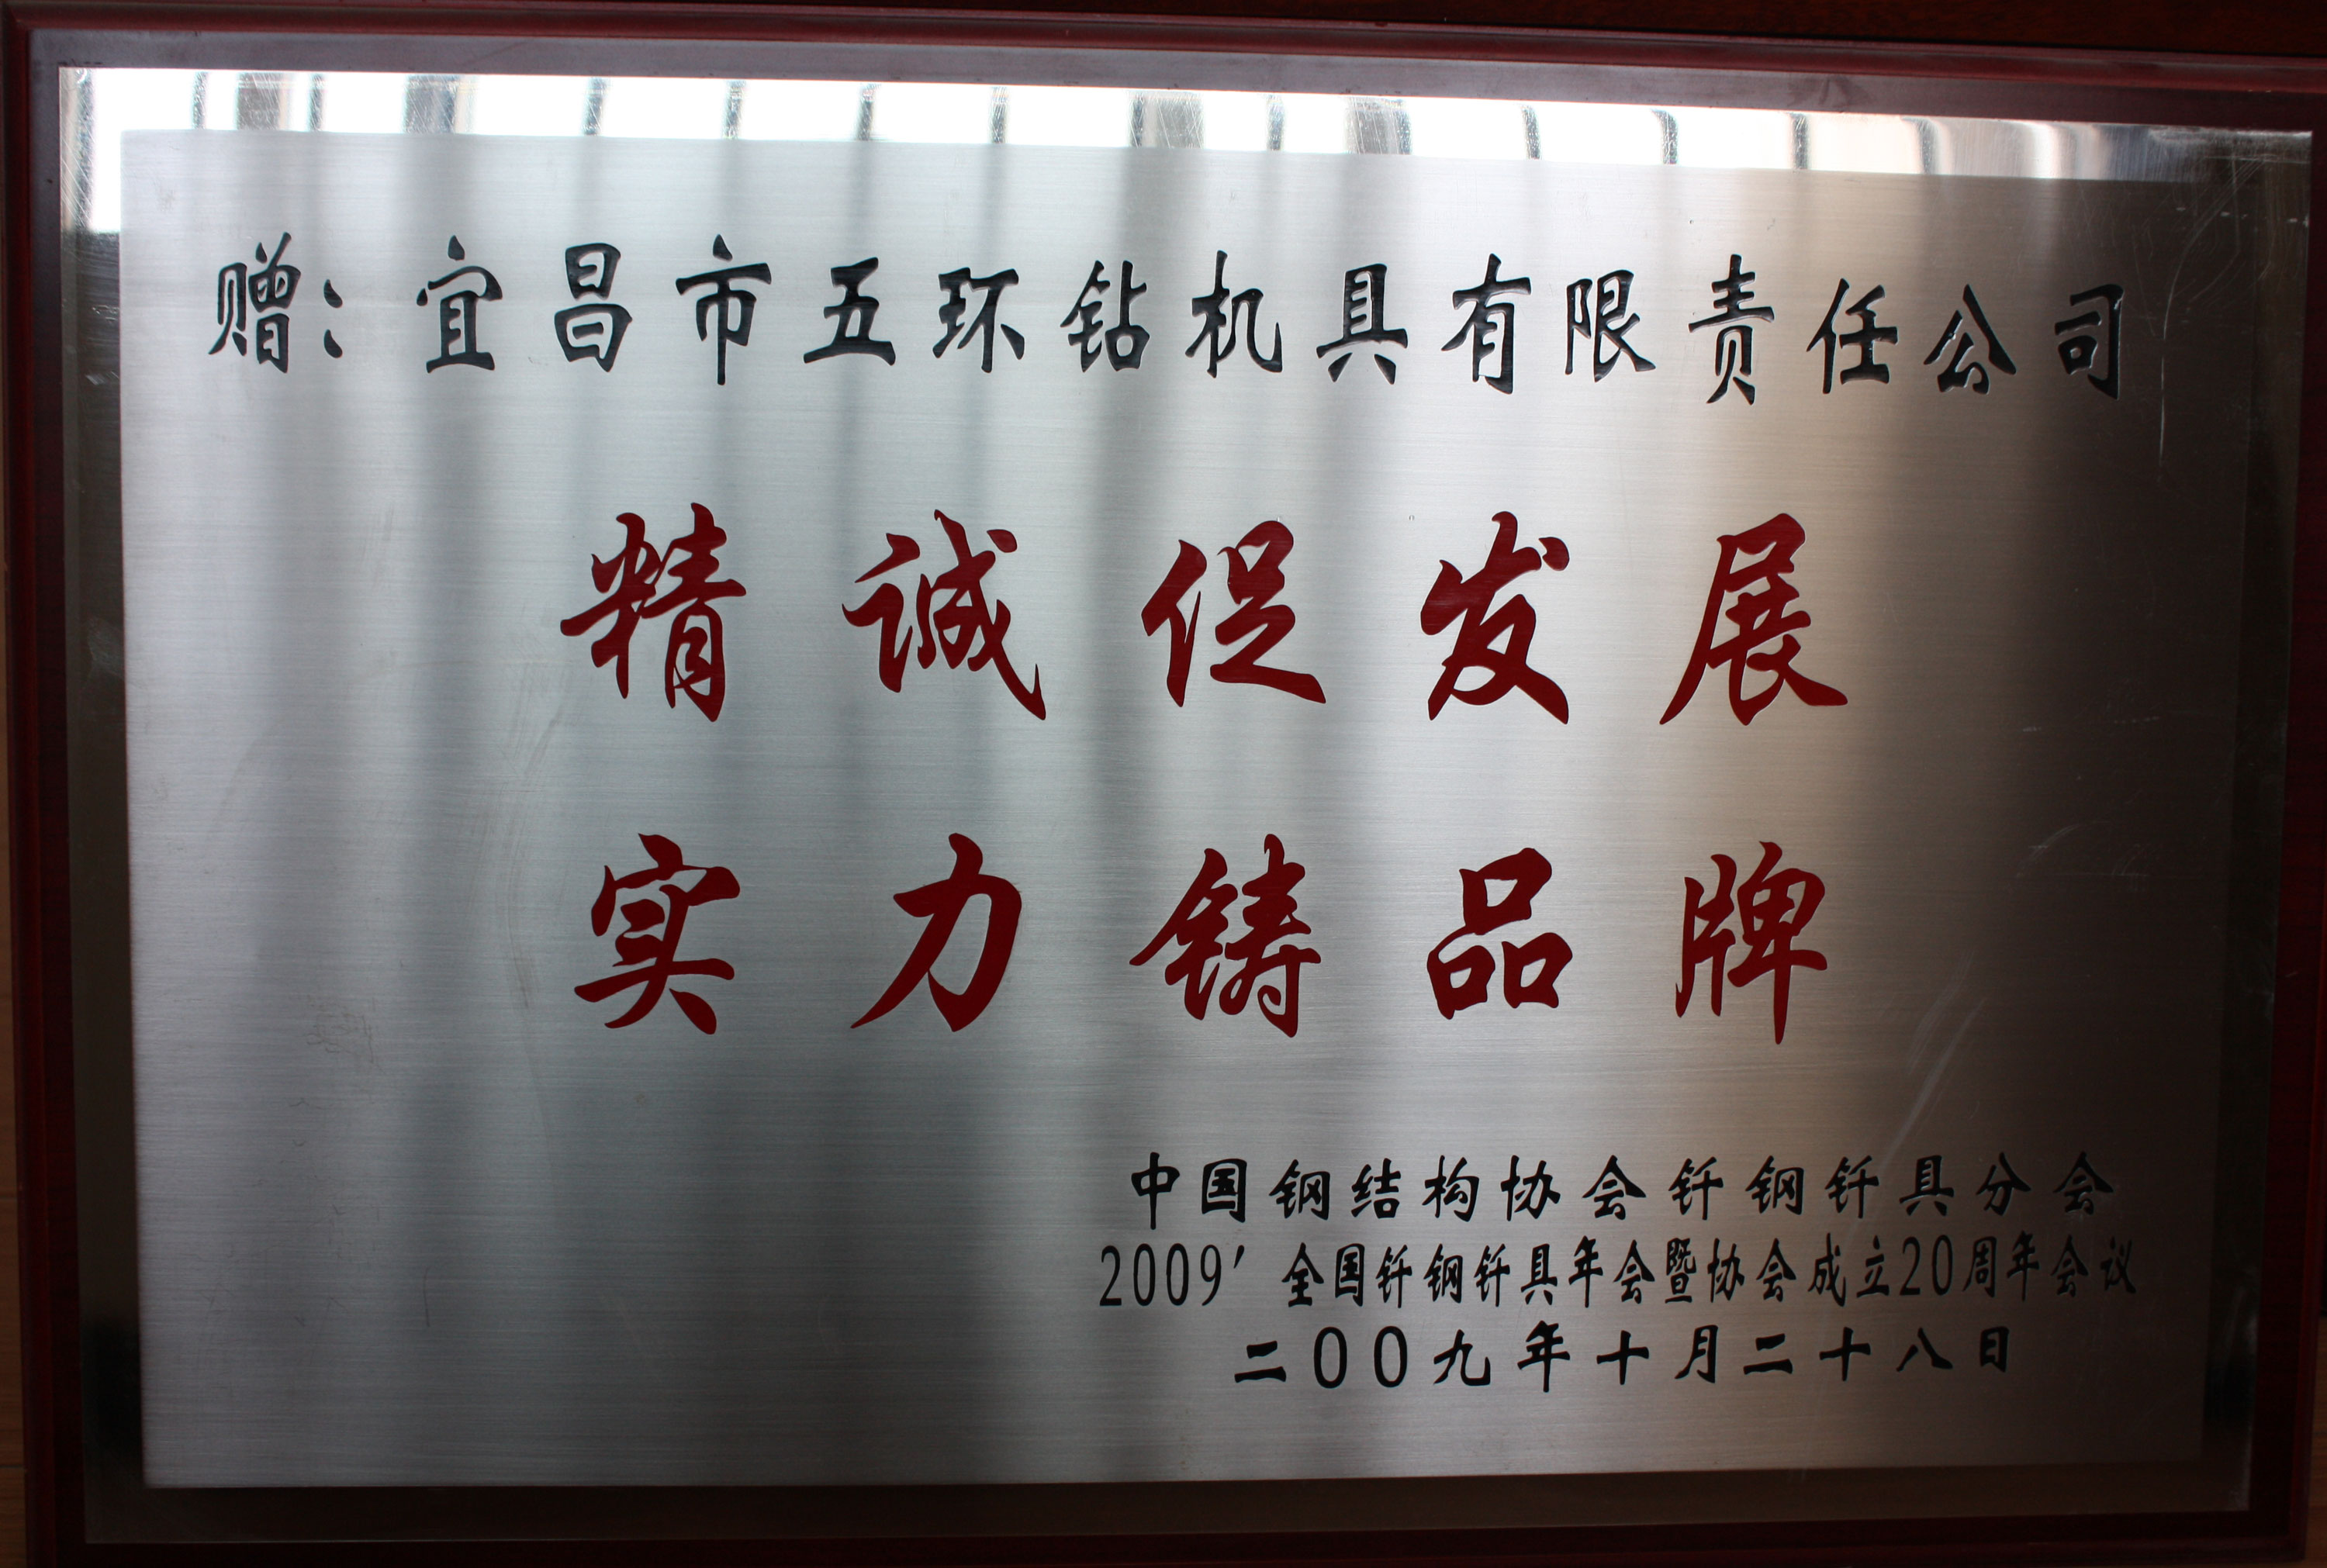 赠：宜昌市五环钻机具有限责任公司
精诚促发展
实力铸品牌
中国钢结构协会钎钢钎具分会
2009'全国钎钢钎具年会暨协会成立20周年会议
二00九年十月二十八日